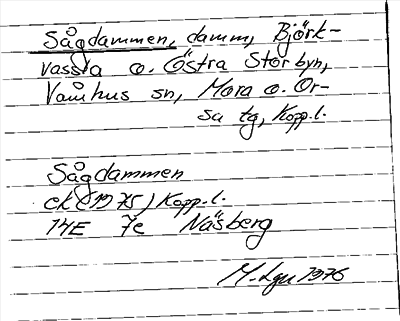 Sågdammen, damm, Björk-
vassla o. Östra Storbyn,
Våmhus sn, Mora o. Or-
sa tg, Kopp.l.
Sågdammen
ek (1975) Kopp.l.
14E 7e Näsberg
M. Lgn 1976